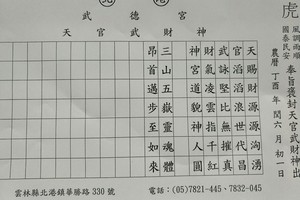 武德宮
天官武財神
虎
風調雨順
國泰民安
奉旨褒封天官武財神出
農曆丁酉年閏六月初一日
天賜財源源洶湧
官滔滔浪世代昌
武詠堅比無摧真
財氣凌雲指千紅
神宮道貌神人圓
三山五嶽靈魂體
昂首邁步至如來
雲林縣北港鎮華勝路330號
電話:(05)7821-445、7832-045